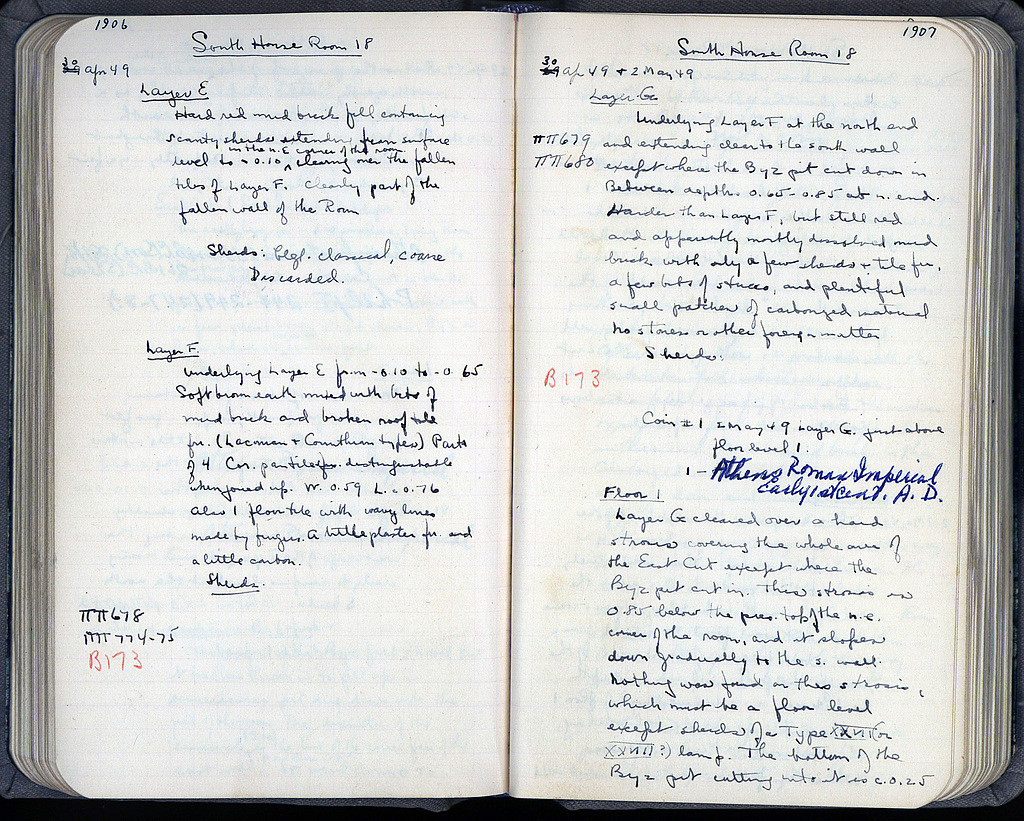 1906
South House Room 18
30
29 Apr 49
Layer E
Hard red mud brick fill containing
scanty sherds extending from surface
in the n.E corner of the room
level to -0.10, clearing over the fallen
tiles of Layer F. Clearly part of the
fallen wall of the Room
Sherds: negl. classical, coarse
Discarded.
Layer F.
underlying Layer E from -0.10 to -0.65
Soft brown earth mixed with bits of
mud brick and broken roof tile
fr. (Laconian + Corinthian types) Parts
of 4 Cor. pantiles distinguishable
when joined up. W. 0.59 L. c 0.76
Also 1 floor tile with wavy lines
made by fingers. A little plaster fr. and
a little carbon.
Sherds.
ΠΠ678
ΠΠ774-75
B173
1907
South House Room 18
30
29 Apr 49 + 2 May 49
Layer G
Underlying Layer F at the north end
ΠΠ679
and extending clear to the south wall
ΠΠ680
except where the Byz pit cut down in
Between depths 0.65-0.85 at n. end.
Harder than Layer F, but still red
and apparently mostly dissolved mud
brick with only a few sherds + tile fr.,
a few bits of stucco, and plentiful
small patches of carbonized material
No stones or other foreign matter
Sherds:
B173
Coin #1 2 May 49 Layer G. just above
floor level 1.
1 - Athens Roman Imperial
Early 1st cent. A.D.
Floor 1
Layer G cleared over a hard
strosis covering the whole area of
the East Cut except where the
Byz pit cut in. This strosis is
0.85 below the pres. top of the n.e.
corner of the room, and it slopes
down gradually to the s. wall.
Nothing was found on this strosis,
which must be a floor level
except sherds of a Type XXVII (or
XXVIII?) lamp. The bottom of the
Byz pit cutting into it is c. 0.25